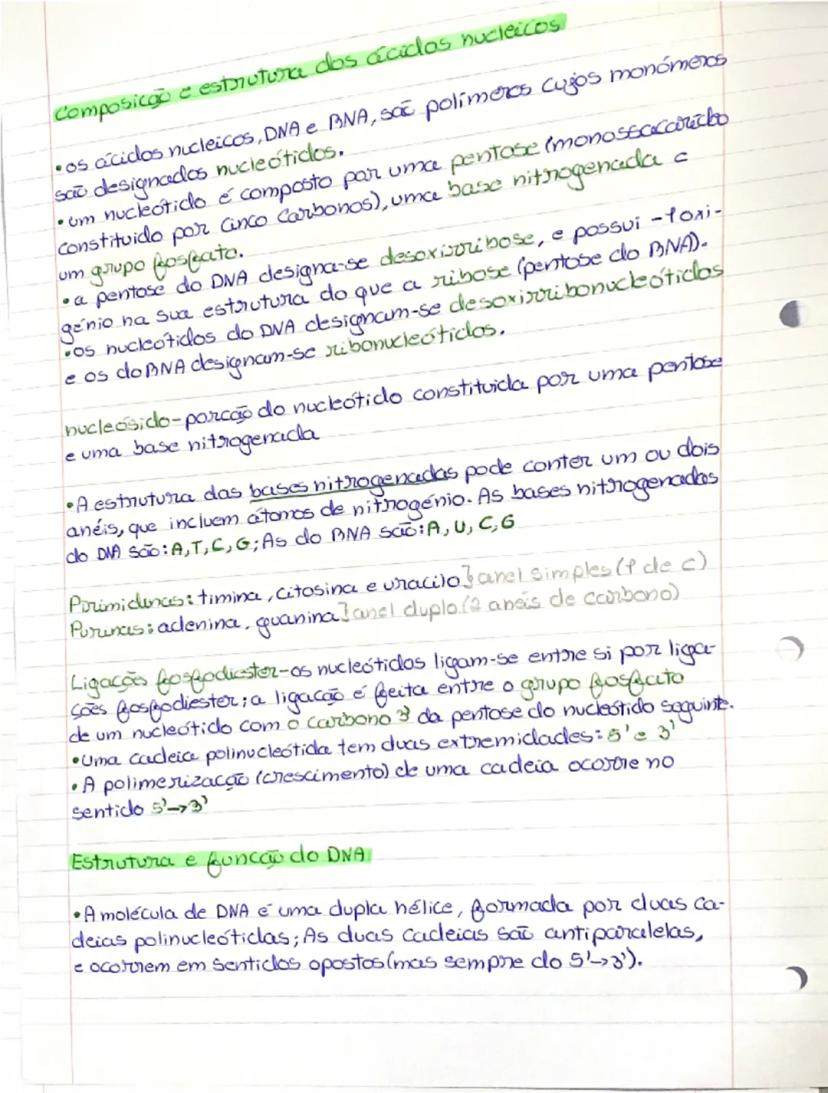 Composição e estrutura dos ácidos nucleicos
• os ácidos nucleicos, DNA e RNA, são polímeros cujos monómeros
são designados nucleótidos.
• um nucleótido é composto por uma pentose (monossacarídeo
constituido por cinco carbonos), uma base nitrogenada e
um grupo fosfato.
• a pentose do DNA designa-se desoxirribose, e possui -1 oxi-
génio na sua estrutura do que a ribose (pentose do RNA).
• os nucleótidos do DNA designam-se desoxirribonucleótidos
e os do RNA designam-se ribonucleótidos.
nucleósido - porção do nucleótido constituida por uma pentose
e uma base nitrogenada
• A estrutura das bases nitrogenadas pode conter um ou dois
anéis, que incluem átomos de nitrogénio. As bases nitrogenadas
do DNA são: A, T, C, G; As do RNA são: A, U, C, G
Pirimidinas: timina, citosina e uracilo } anel simples (1 de C)
Purinas: adenina, guanina } anel duplo (2 anéis de carbono)
Ligações fosfodiester - os nucleótidos ligam-se entre si por liga-
ções fosfodiester; a ligação é feita entre o grupo fosfato
de um nucleótido com o carbono 3' da pentose do nucleótido seguinte.
• Uma cadeia polinucleótida tem duas extremidades: 5' e 3'
• A polimerização (crescimento) de uma cadeia ocorre no
sentido 5'→3'
Estrutura e função do DNA
• A molécula de DNA é uma dupla hélice, formada por duas ca-
deias polinucleótidas; As duas cadeias são antiparalelas,
e ocorrem em sentidos opostos (mas sempre do 5'→3').